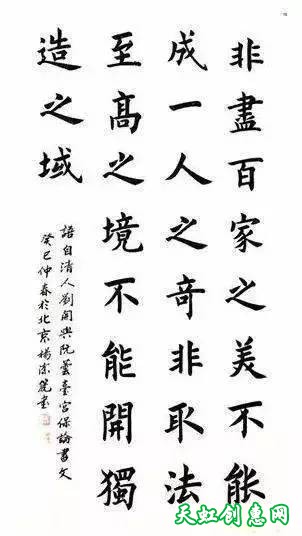 非盡百家之美不能
成一人之奇非取法
至髙之境不能開獨
造之域
語自清人劉開與阮蕓臺宮保論書文
癸巳仲春於北京楊書
天虹创惠网